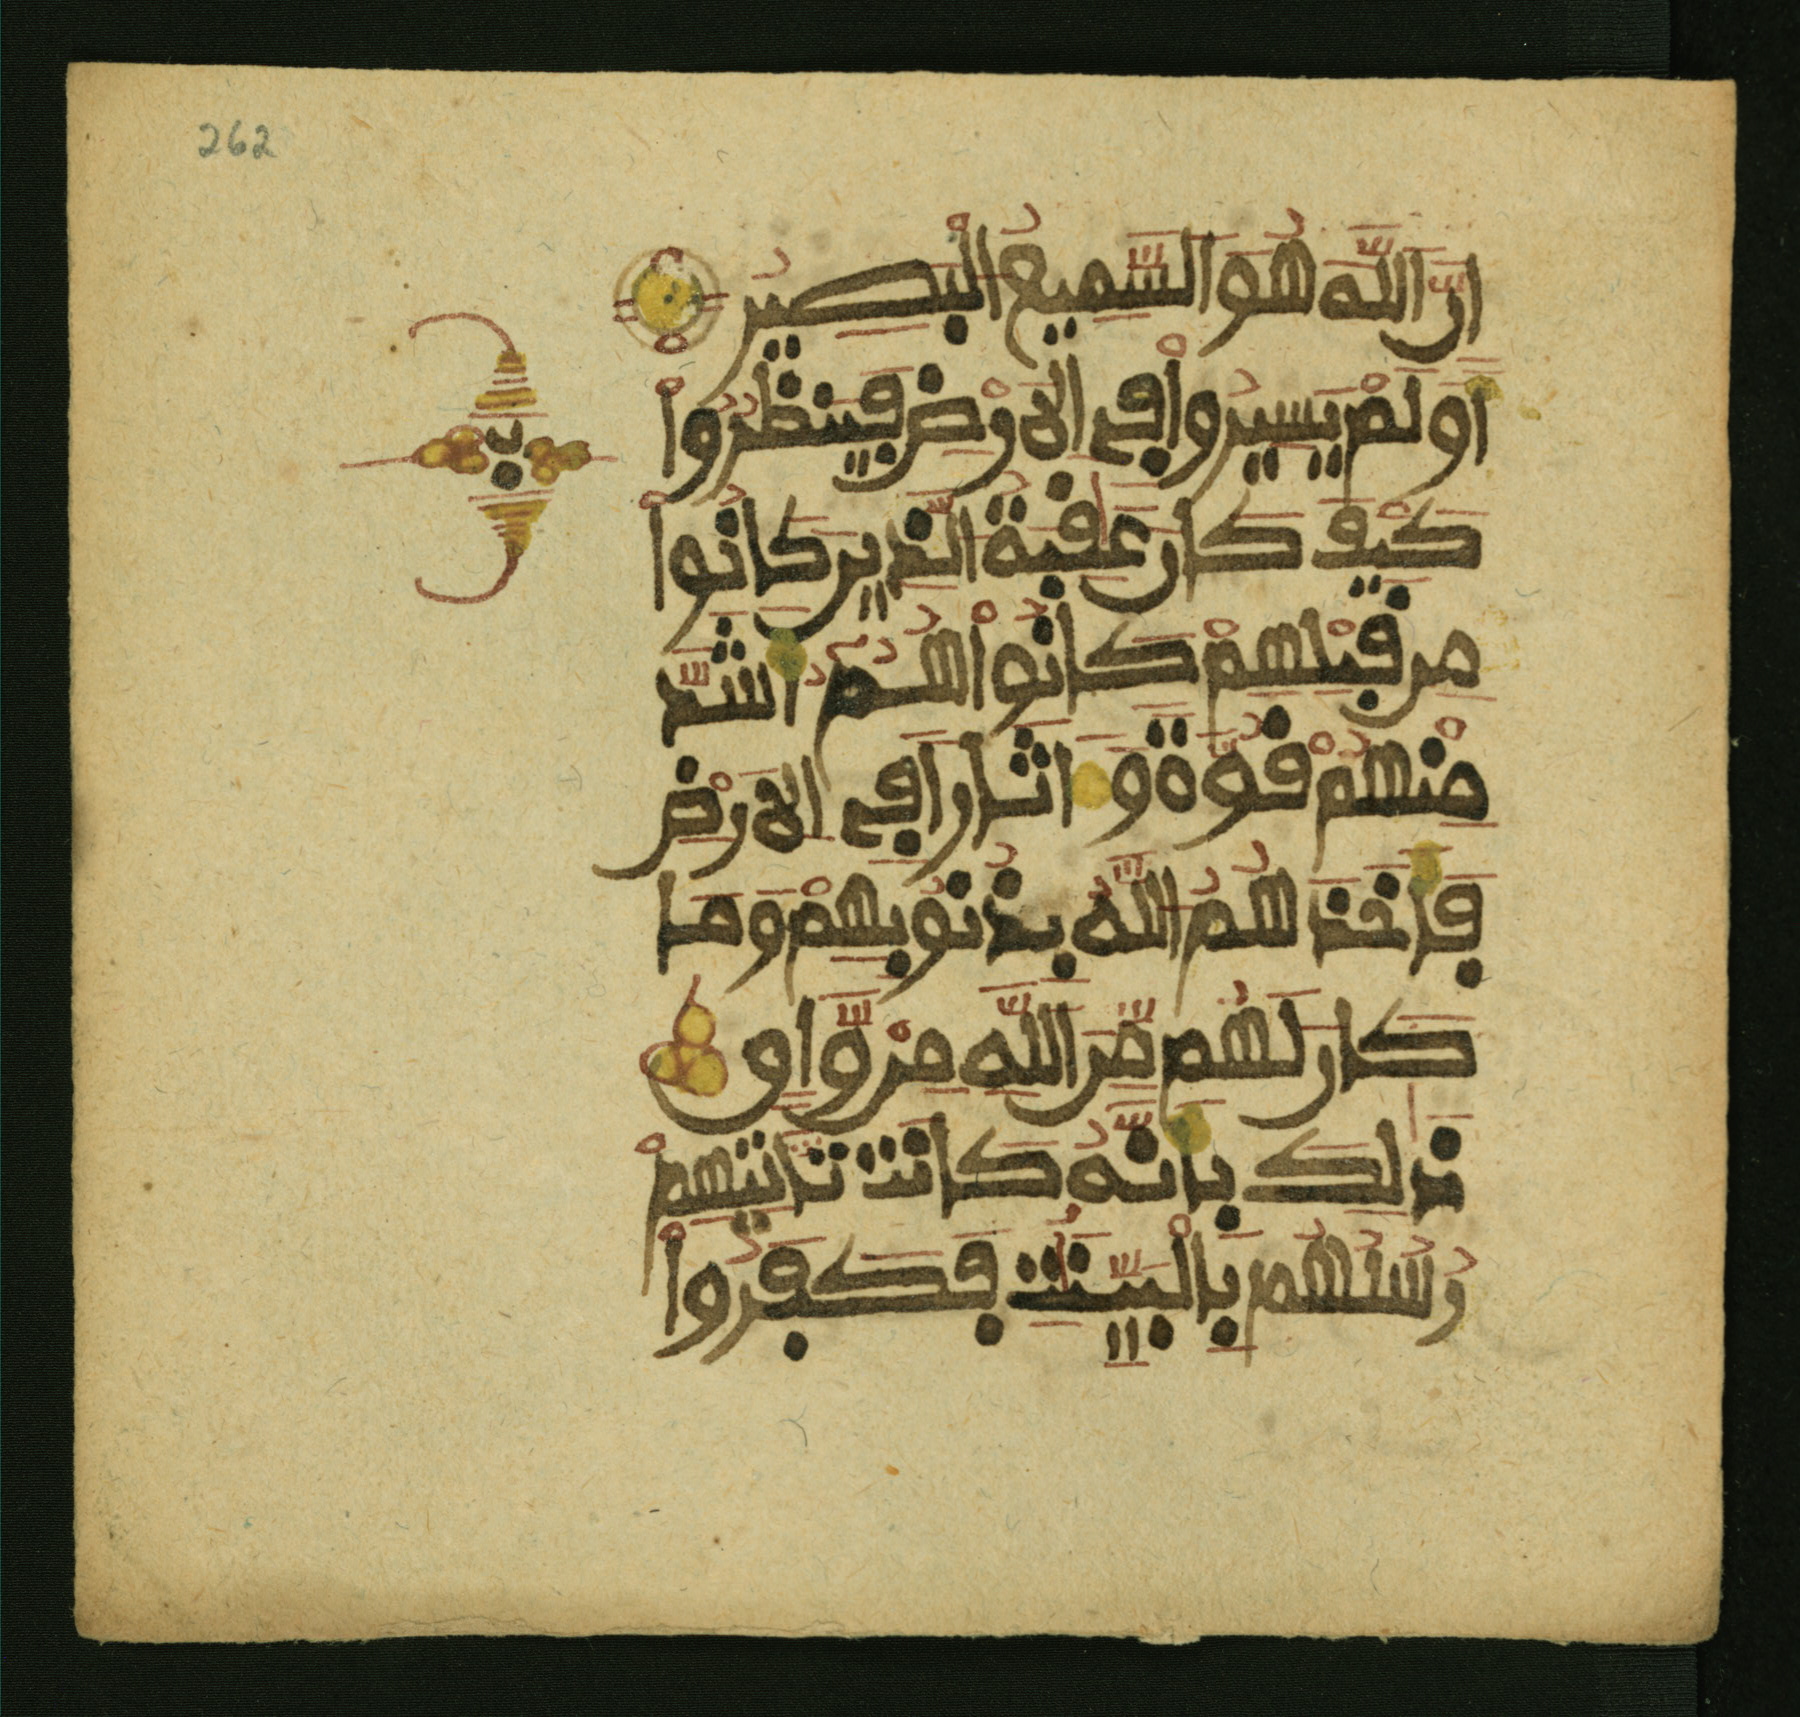 262
اِنَّ اللَّهَ هُوَ السَّمِيعُ الْبَصِيرُ
اَوَلَمْ يَسِيرُواْ فِى الَارْضِ فَيَنظُرُواْ
كَيْفَ كَانَ عَٰقِبَةُ الَّذِينَ كَانُواْ
مِن قَبْلِهِمْ كَانُواْ هُمُۥٓ أَشَدَّ
مِنْهُمْ قُوَّةً وَءَاثَاراً فِى الَارْضِ
فَأَخَذَهُمُ اللَّهُ بِذُنُوبِهِمْ وَمَا
كَانَ لَهُم مِّنَ اللَّهِ مِنْ وَّاقٍ
ذَٰلِكَ بِأَنَّهُۥ كَانَت تَّاتِيهِمْ
رُسُلُهُم بِالْبَيِّنَٰتِ فَكَفَرُواْ
ب